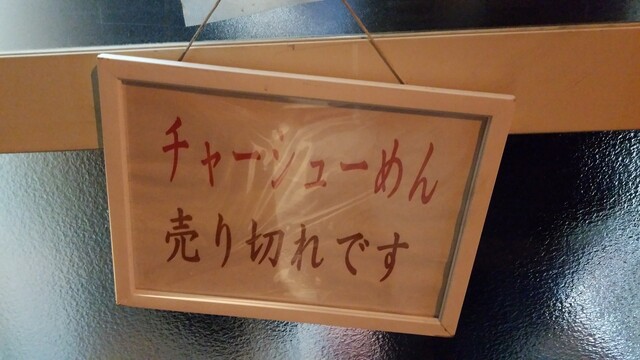 チャーシューめん
売り切れです